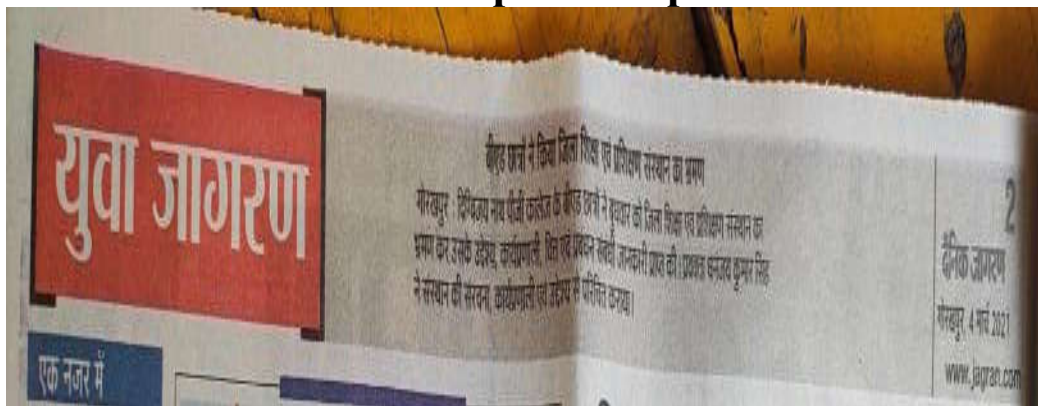 युवा जागरण
बीएड छात्रों ने किया जिला शिक्षा एवं प्रशिक्षण संस्थान का भ्रमण
गोरखपुर : दिग्विजय नाथ पीजी कालेज के बीएड छात्रों ने बुधवार को जिला शिक्षा एवं प्रशिक्षण संस्थान का
भ्रमण कर उसके उद्देश्य, कार्यप्रणाली, वित्त एवं प्रबंधन संबंधी जानकारी प्राप्त की। प्रवक्ता धनंजय कुमार सिंह
ने संस्थान की संरचना, कार्यप्रणाली एवं उद्देश्य से परिचित कराया।
2
दैनिक जागरण
गोरखपुर, 4 मार्च 2021
www.jagran.com
एक नजर में